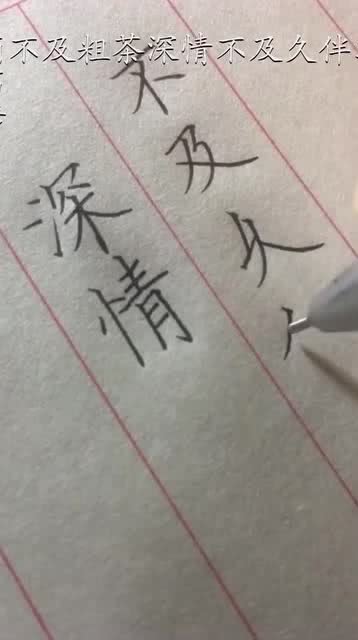 不及粗茶深情不及久伴
深情
不及久